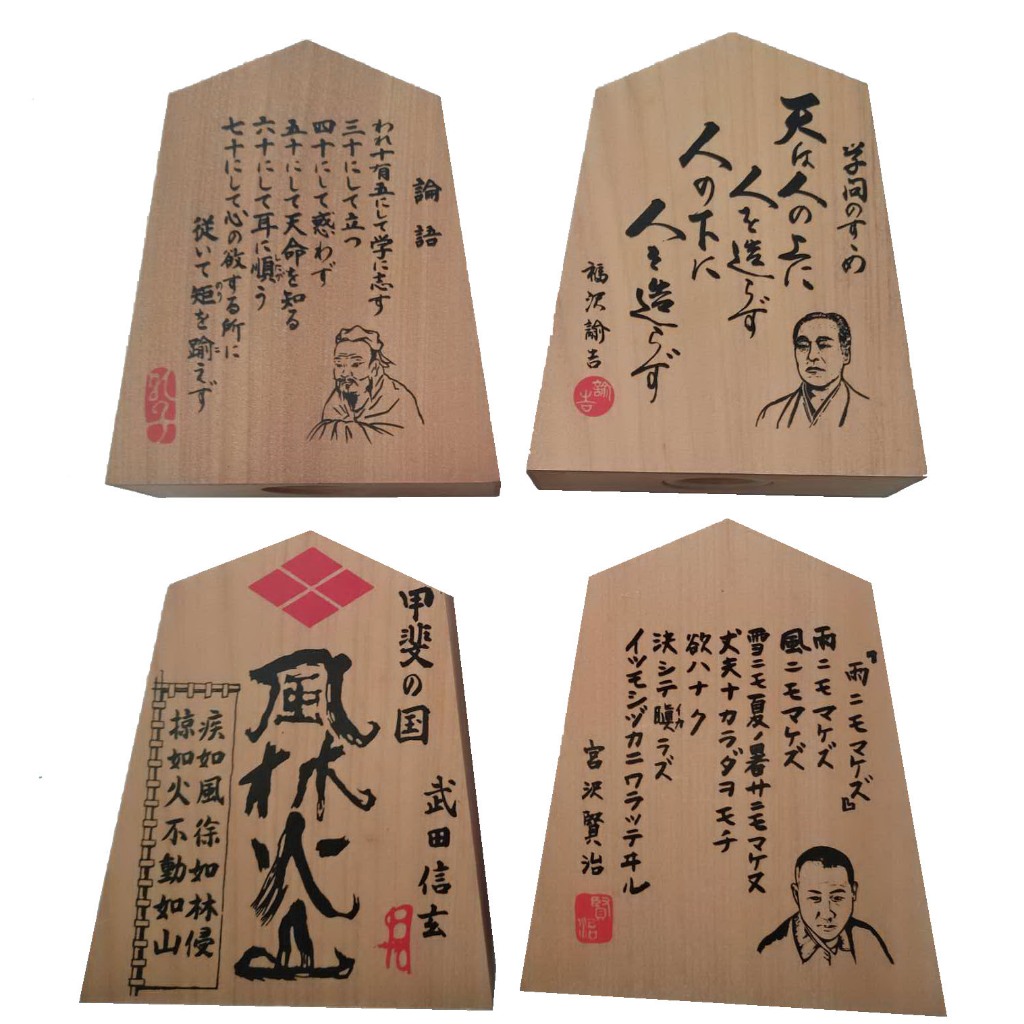 論語
われ十有五にして学に志す
三十にして立つ
四十にして惑わず
五十にして天命を知る
六十にして耳に順う
したが
七十にして心の欲する所に
従いて矩を踰えず
のり
こ
孔子
学問のすゝめ
天は人の上に
人を造らず
人の下に
人を造らず
福沢諭吉
諭吉
甲斐の国
武田信玄
風林火山
疾如風徐如林侵
掠如火不動如山
『雨ニモマケズ』
雨ニモマケズ
風ニモマケズ
雪ニモ夏ノ暑サニモマケヌ
丈夫ナカラダヲモチ
欲ハナク
決シテ瞋ラズ
イカ
イツモシヅカニワラッテヰル
宮沢賢治
賢治